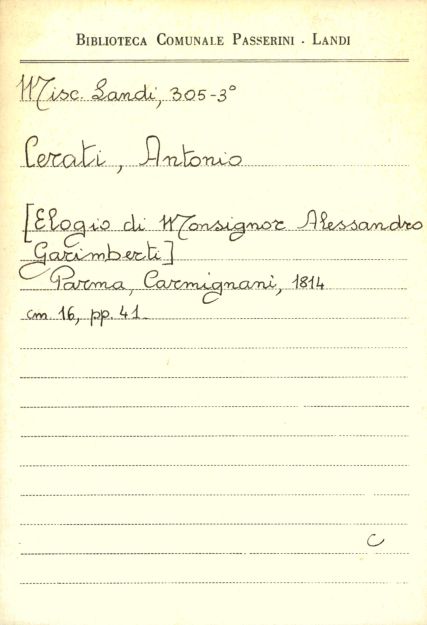 BIBLIOTECA COMUNALE PASSERINI - LANDI
Misc. Landi, 305-3°
Cerati, Antonio
[Elogio di Monsignor Alessandro
Garimberti]
Parma, Carmignani, 1814
cm. 16, pp. 41.
C